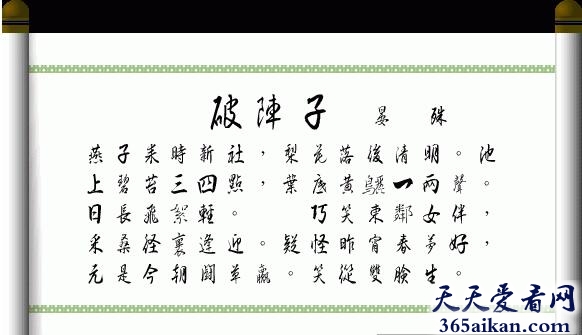 破陣子 晏殊
燕子來時新社，梨花落後清明。池
上碧苔三四點，葉底黃鸝一兩聲。
日長飛絮輕。 巧笑東鄰女伴，
采桑徑裏逢迎。疑怪昨宵春夢好，
元是今朝鬪草贏。笑從雙臉生。
天天爱看网
365aikan.com